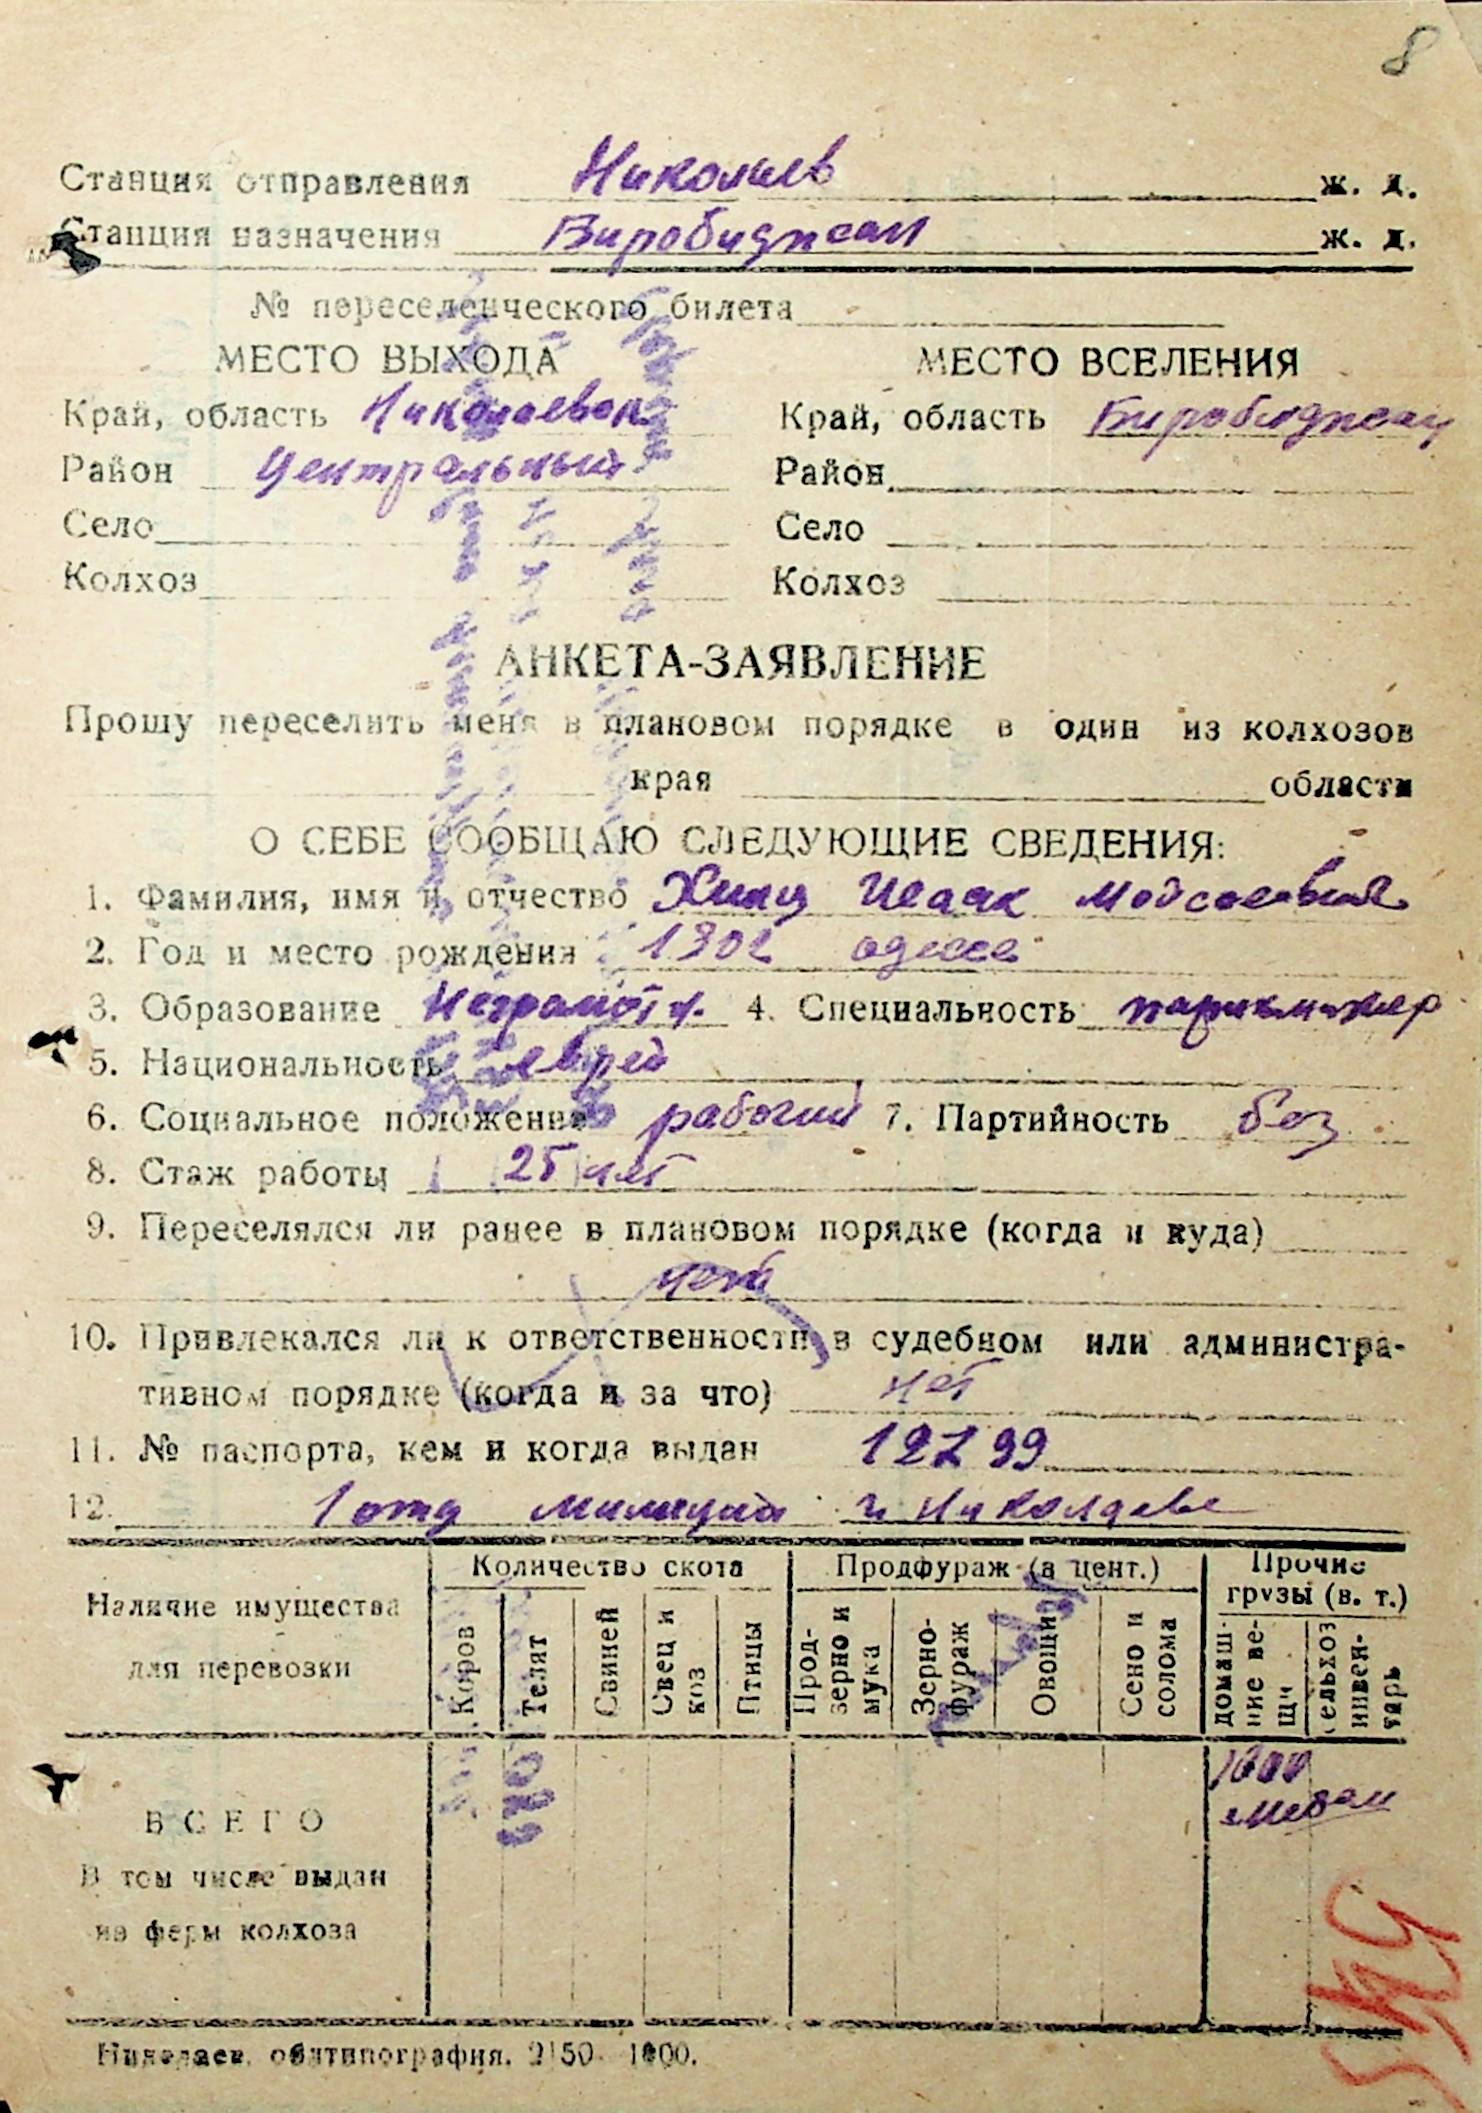 8
Станция отправления Николаев ж. д.
Станция назначения Биробиджан ж. д.
№ переселенческого билета
МЕСТО ВЫХОДА МЕСТО ВСЕЛЕНИЯ
Край, область Николаевск Край, область Биробиджан
Район Центральный Район
Село Село
Колхоз Колхоз
АНКЕТА-ЗАЯВЛЕНИЕ
Прошу переселить меня в плановом порядке в один из колхозов
края области
О СЕБЕ СООБЩАЮ СЛЕДУЮЩИЕ СВЕДЕНИЯ:
1. Фамилия, имя и отчество Хинц Исаак
2. Год и место рождения 1902 одесса
3. Образование Неграмотн. 4. Специальность парикмахер
5. Национальность еврей
6. Социальное положение рабочий 7. Партийность без
8. Стаж работы 25 лет
9. Переселялся ли ранее в плановом порядке (когда и куда)
нет
10. Привлекался ли к ответственности в судебном или администра-
тивном порядке (когда и за что) нет
11. № паспорта, кем и когда выдан 127 99
12. 1 отд милиции г. Николаеве
Наличие имущества для перевозки
Количество скота
Продфураж (в цент.)
Прочие грузы (в. т.)
Коров
Телят
Свиней
Свец и коз
Птицы
Прод-зерно и мука
Зерно-фураж
Овощи
Сено и солома
домаш-ние ве-щи
сельхоз инвен-тарь
ВСЕГО
1000
В том числе выдан
из ферм колхоза
Николаев, облтипография. 2150 1000.